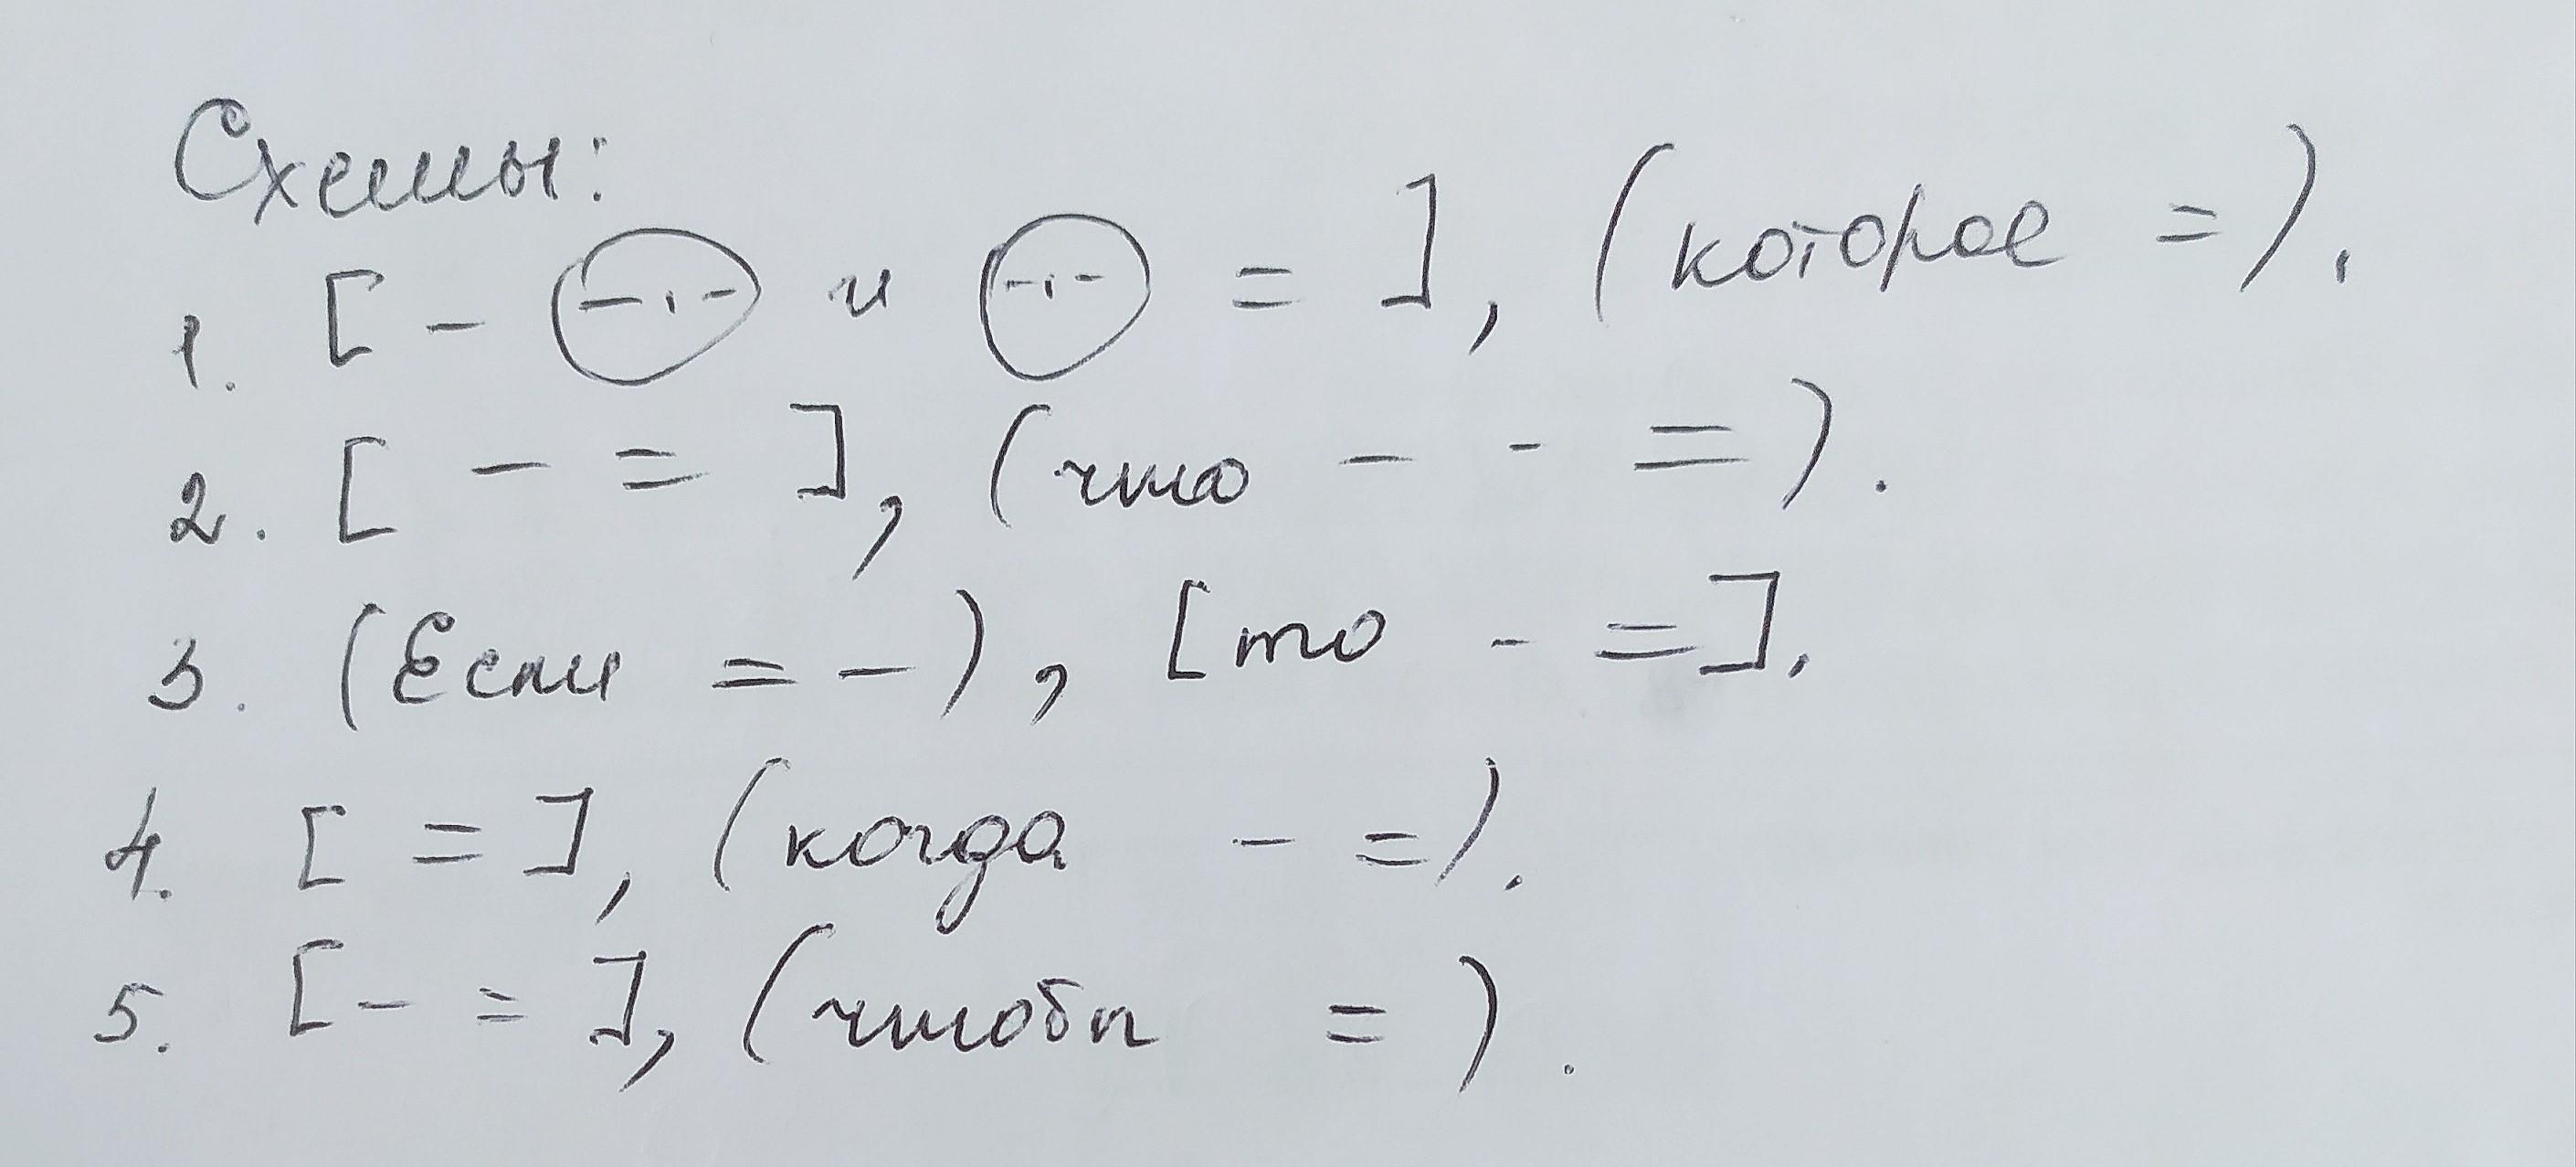 Схемы:
1. [ - (-.-) и (-.-) = ], (которое =).
2. [ - = ], (что - - =).
3. (Если = -), [то - =].
4. [ = ], (когда - =).
5. [ - = ], (чтобы = ).